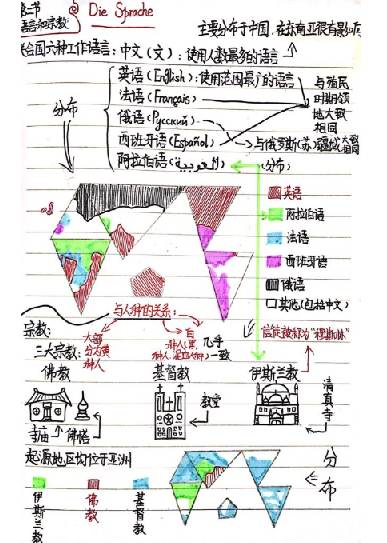 第二节
语言和宗教
Die Sprache
主要分布于中国，在东南亚很有影响
联合国六种工作语言：中文(文)：使用人数最多的语言
英语(English)：使用范围最广的语言
法语(Français)
俄语(Русский)
西班牙语(Español)
阿拉伯语(العربية)
分布
与殖民
时期领
地大致
相同
与俄罗斯(苏
大致
相同
(分布)
英语
阿拉伯语
法语
西班牙语
俄语
其他(包括中文)
信徒被称为"穆斯林"
与人种的关系：
大部
分为黄
种人
白
种人
几乎
一致
宗教：
三大宗教：
佛教
基督教
伊斯兰教
教堂
清真寺
寺庙
佛塔
起源地区均位于亚洲
分布
伊斯兰教
佛教
基督教